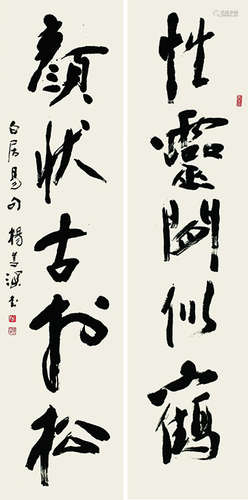 性靈閑似鶴
顏狀古於松
白居易句 楊善深書